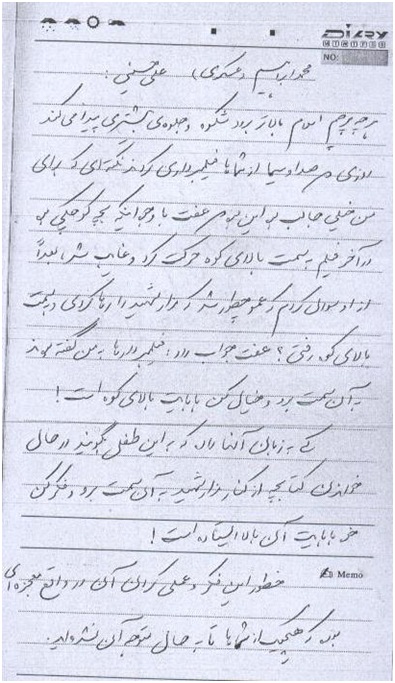 DIARY
NO:
محمد ابراهیم (عسکری) علی حسینی :
هر چه پرچم اسلام بالاتر برود شکوه و جلوه‌ی بیشتری پیدا می کند
روزی در صدا و سیما از شماها فیلمبرداری کردند نکته‌ای که برای
من خیلی جالب بود این بود که عفت با وجود اینکه بچه کوچکی بود
در آخر فیلم به سمت بالای کوه حرکت کرد و غایب شد، بعداً
از او سوال کردم که عمو چطور شد که مزار شهید را رها کردی و به سمت
بالای کوه رفتی؟ عفت جواب داد: فیلمبردارها به من گفته بودند
به آن سمت برو و خیال کن بابایت بالای کوه است!
کی به زبان آنها داد که به این طفل بگویند در حال
خواندن کتابچه از کنار مزار شهید به آن سمت برو و فکر کن
که بابایت آن بالا ایستاده است!
Memo
خطور این فکر و عملی کردن آن در واقع معجزه‌ای
بوده که هیچیک از شماها تا به حال متوجه آن نشده‌اید.